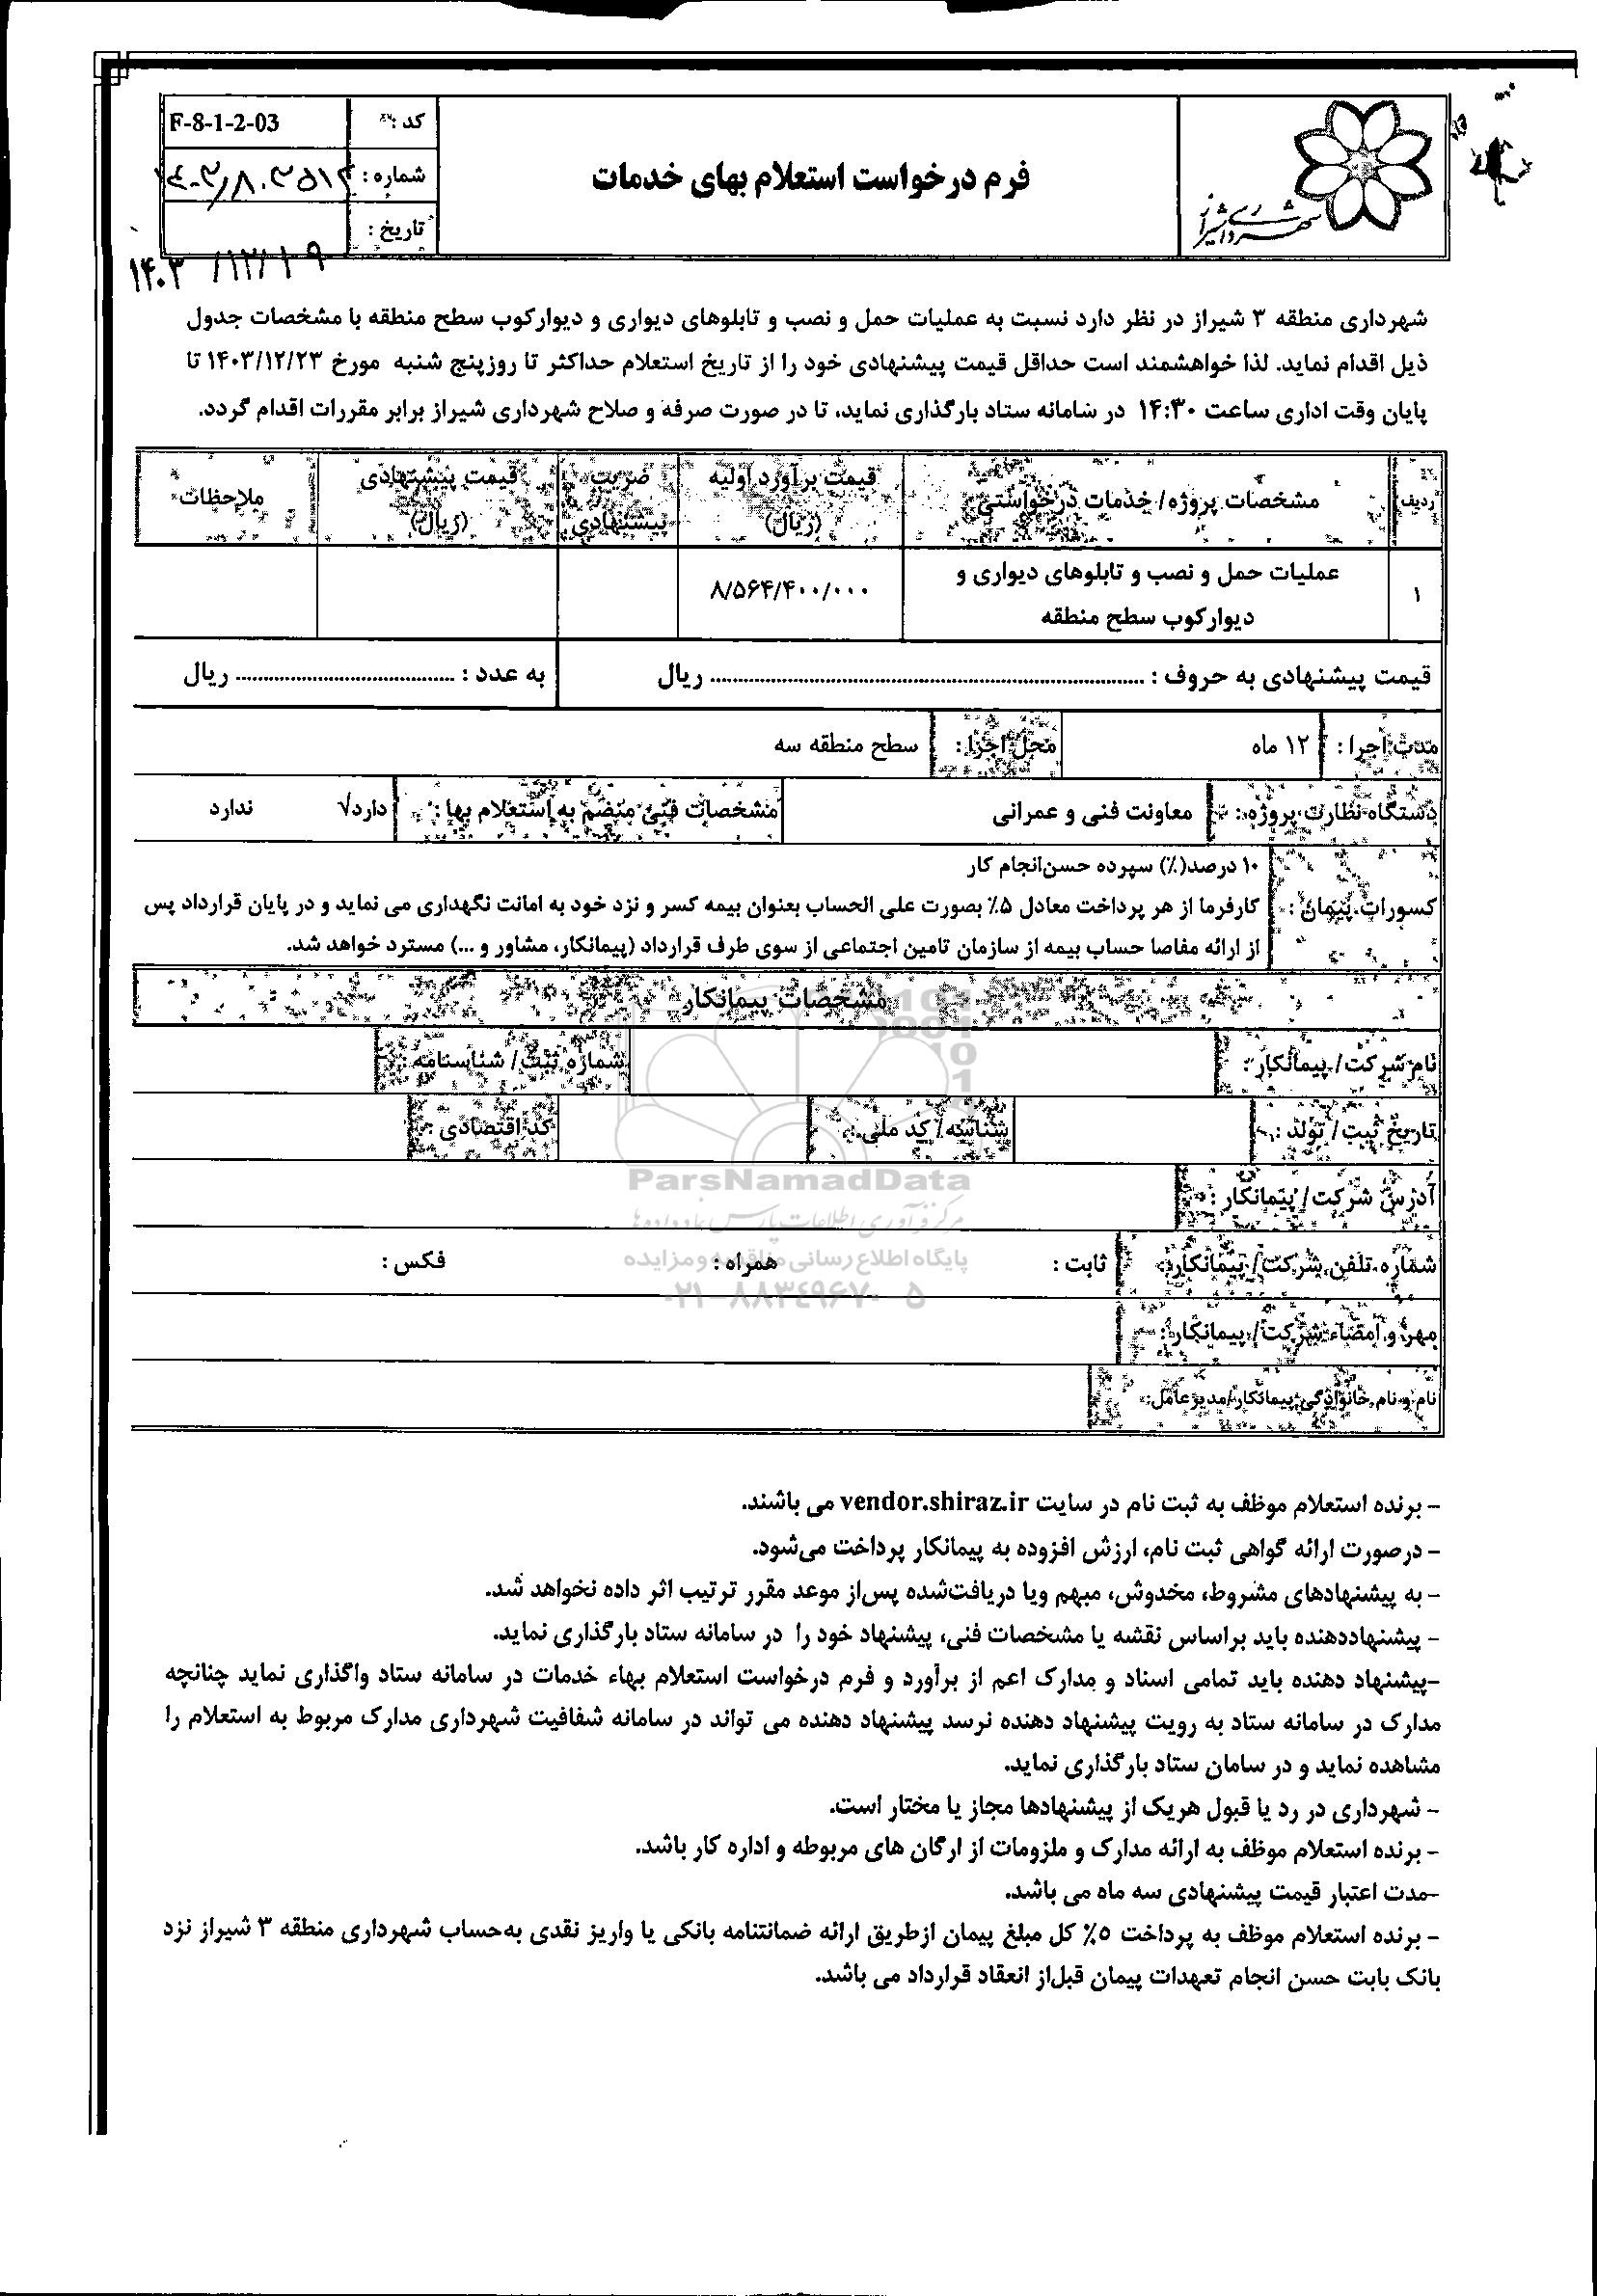 شهرداری شیراز
فرم درخواست استعلام بهای خدمات
کد :
F-8-1-2-03
شماره :
تاریخ :
۱۴۰۳/۱۲/۱۹
شهرداری منطقه ۳ شیراز در نظر دارد نسبت به عملیات حمل و نصب و تابلوهای دیواری و دیوارکوب سطح منطقه با مشخصات جدول
ذیل اقدام نماید. لذا خواهشمند است حداقل قیمت پیشنهادی خود را از تاریخ استعلام حداکثر تا روزپنج شنبه مورخ ۱۴۰۳/۱۲/۲۳ تا
پایان وقت اداری ساعت ۱۴:۳۰ در سامانه ستاد بارگذاری نماید، تا در صورت صرفه و صلاح شهرداری شیراز برابر مقررات اقدام گردد.
ردیف مشخصات پروژه/ خدمات درخواستی قیمت برآورد اولیه (ریال) ضریب پیشنهادی قیمت پیشنهادی (ریال) ملاحظات
۱ عملیات حمل و نصب و تابلوهای دیواری و ۸/۵۶۴/۴۰۰/۰۰۰
دیوارکوب سطح منطقه
قیمت پیشنهادی به حروف : ........................ ریال به عدد : ........................ ریال
مدت اجرا : ۱۲ ماه محل اجرا : سطح منطقه سه
دستگاه نظارت پروژه : معاونت فنی و عمرانی مشخصات فنی منضم به استعلام بها : دارد√ ندارد
۱۰ درصد(٪) سپرده حسن‌انجام کار
کسورات پیمان : کارفرما از هر پرداخت معادل ۵٪ بصورت علی الحساب بعنوان بیمه کسر و نزد خود به امانت نگهداری می نماید و در پایان قرارداد پس
از ارائه مفاصا حساب بیمه از سازمان تامین اجتماعی از سوی طرف قرارداد (پیمانکار، مشاور و ...) مسترد خواهد شد.
مشخصات پیمانکار
نام شرکت/ پیمانکار : شماره ثبت/ شناسنامه :
تاریخ ثبت/ تولد : شناسه/ کد ملی : کد اقتصادی :
ParsNamadData
آدرس شرکت/ پیمانکار :
مرکز فرآوری اطلاعات پارس نماد داده‌ها
شماره تلفن شرکت/ پیمانکار : ثابت : همراه : فکس :
پایگاه اطلاع رسانی مناقصه و مزایده
۰۲۱-۸۸۳۴۹۶۷۰-۵
مهر و امضاء شرکت/ پیمانکار :
نام و نام خانوادگی پیمانکار/مدیرعامل:
- برنده استعلام موظف به ثبت نام در سایت vendor.shiraz.ir می باشند.
- درصورت ارائه گواهی ثبت نام، ارزش افزوده به پیمانکار پرداخت می‌شود.
- به پیشنهادهای مشروط، مخدوش، مبهم ویا دریافت‌شده پس‌از موعد مقرر ترتیب اثر داده نخواهد شد.
- پیشنهاددهنده باید براساس نقشه یا مشخصات فنی، پیشنهاد خود را در سامانه ستاد بارگذاری نماید.
-پیشنهاد دهنده باید تمامی اسناد و مدارک اعم از برآورد و فرم درخواست استعلام بهاء خدمات در سامانه ستاد واگذاری نماید چنانچه
مدارک در سامانه ستاد به رویت پیشنهاد دهنده نرسد پیشنهاد دهنده می تواند در سامانه شفافیت شهرداری مدارک مربوط به استعلام را
مشاهده نماید و در سامان ستاد بارگذاری نماید.
- شهرداری در رد یا قبول هریک از پیشنهادها مجاز یا مختار است.
- برنده استعلام موظف به ارائه مدارک و ملزومات از ارگان های مربوطه و اداره کار باشد.
-مدت اعتبار قیمت پیشنهادی سه ماه می باشد.
- برنده استعلام موظف به پرداخت ۵٪ کل مبلغ پیمان ازطریق ارائه ضمانتنامه بانکی یا واریز نقدی به‌حساب شهرداری منطقه ۳ شیراز نزد
بانک بابت حسن انجام تعهدات پیمان قبل‌از انعقاد قرارداد می باشد.